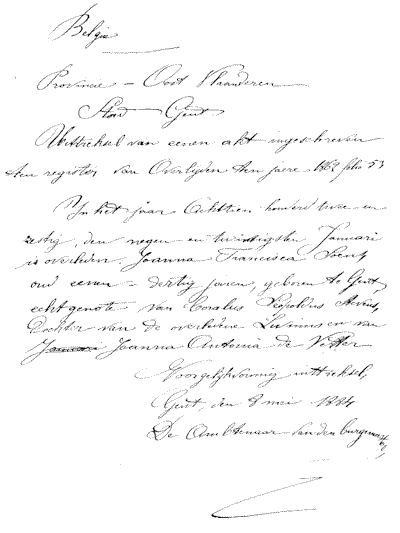 Belgie
Provincie – Oost Vlaanderen
Stad Gent
Uittreksel van eenen akt ingeschreven
den register van Overlijden den jaere 1862 folio 53
In het jaar Achttien honderd twee en
zestig, den negen en twintigsten Januari
is overleden, Joanna Francisca
oud eenen – dertig jaren, geboren te Gent,
echtgenote van Carolus Leopoldus
Dochter van de overledene Livinus en van
Januari Joanna Antonia de Vetter
Voorgelijkvormig uittreksel,
Gent, den 8 mei 1884
De Ambtenaar van den burgerl